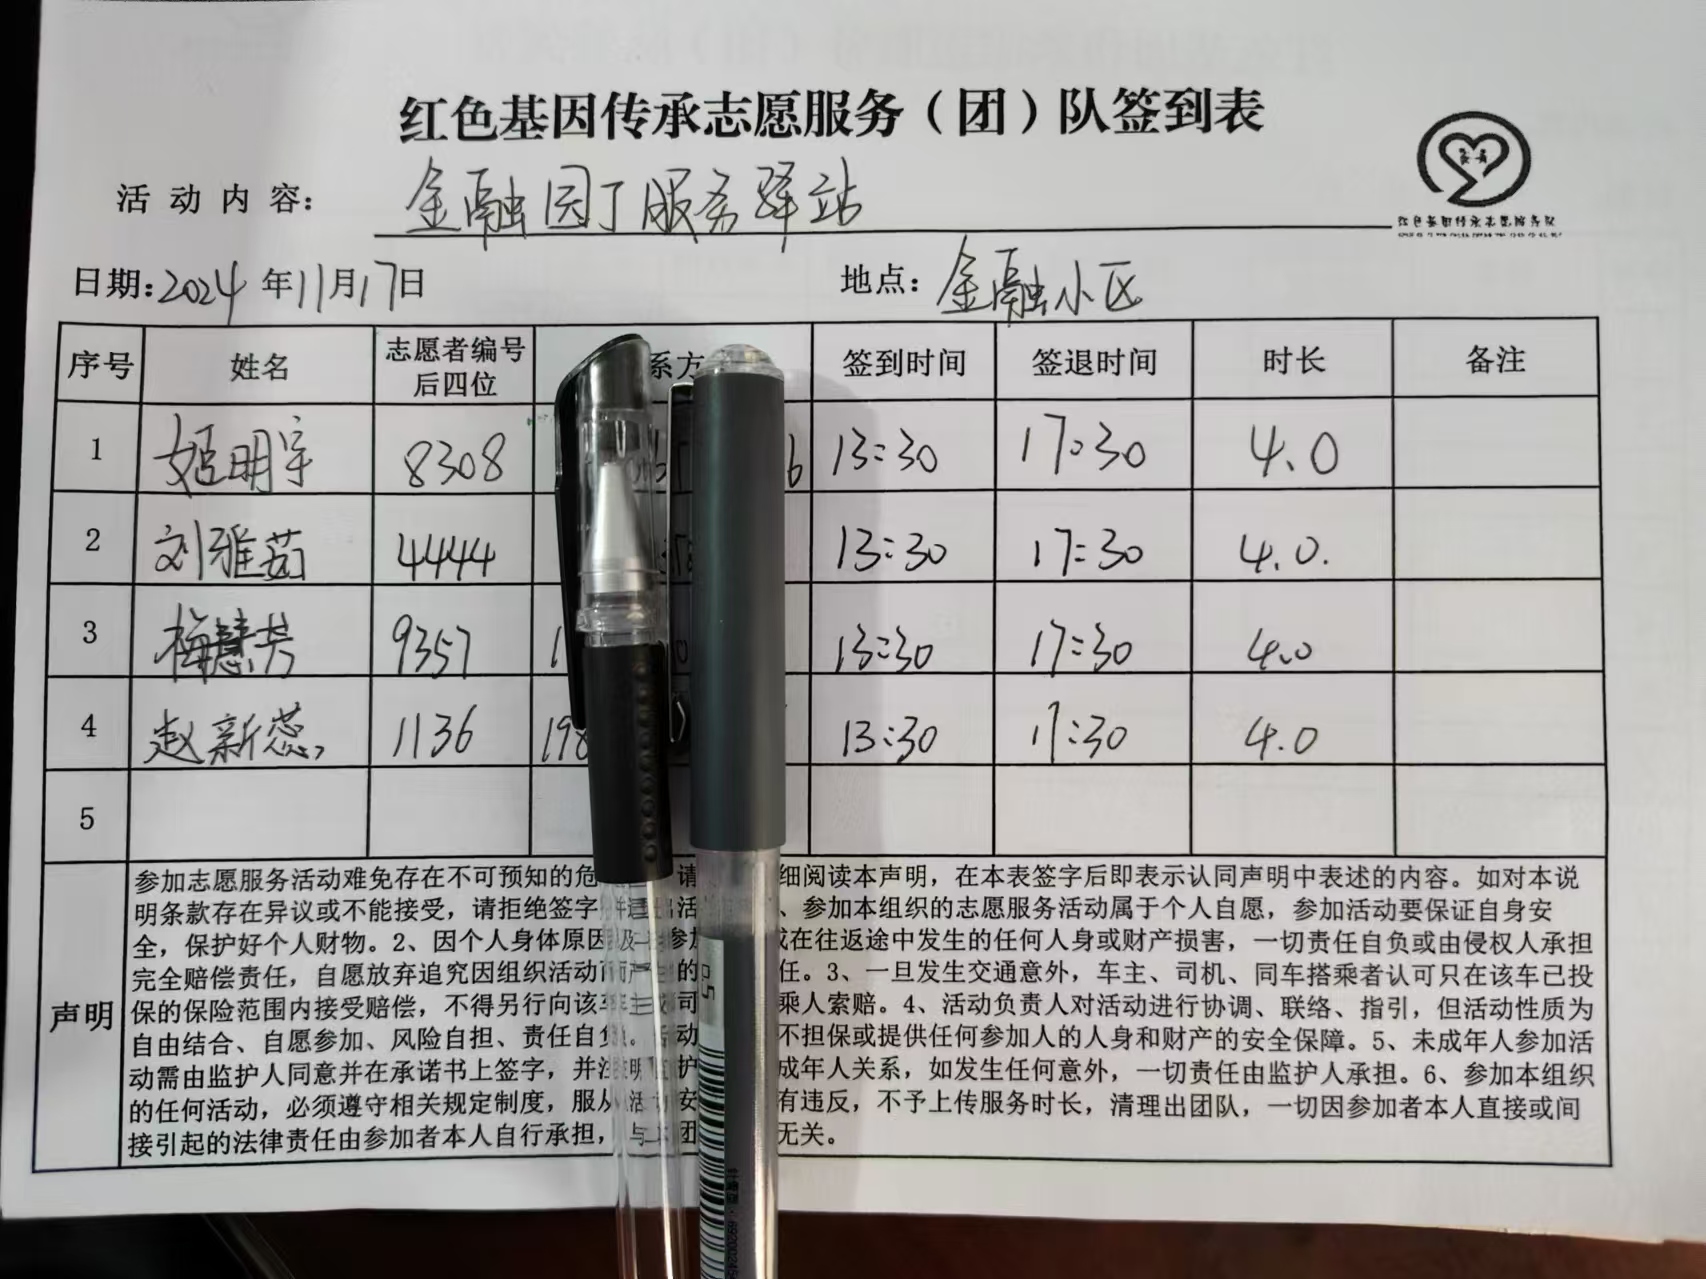 红色基因传承志愿服务（团）队签到表
活动内容： 金融园丁服务驿站
红色基因传承志愿服务队
日期：2024年11月17日 地点：金融小区
序号 姓名 志愿者编号后四位 系方 签到时间 签退时间 时长 备注
1 姬明宇 8308 6 13:30 17:30 4.0
2 刘雅茹 4444 13:30 17:30 4.0.
3 梅慧芳 9357 1 13:30 17:30 4.0
4 赵新蕊 1136 198 13:30 17:30 4.0
5
声明
参加志愿服务活动难免存在不可预知的危 请 细阅读本声明，在本表签字后即表示认同声明中表述的内容。如对本说
明条款存在异议或不能接受，请拒绝签字 活 、参加本组织的志愿服务活动属于个人自愿，参加活动要保证自身安
全，保护好个人财物。2、因个人身体原因 参 或在往返途中发生的任何人身或财产损害，一切责任自负或由侵权人承担
完全赔偿责任，自愿放弃追究因组织活动而产生的 任。3、一旦发生交通意外，车主、司机、同车搭乘者认可只在该车已投
保的保险范围内接受赔偿，不得另行向该车主或司 乘人索赔。4、活动负责人对活动进行协调、联络、指引，但活动性质为
自由结合、自愿参加、风险自担、责任自负。活动 不担保或提供任何参加人的人身和财产的安全保障。5、未成年人参加活
动需由监护人同意并在承诺书上签字，并注明监护 成年人关系，如发生任何意外，一切责任由监护人承担。6、参加本组织
的任何活动，必须遵守相关规定制度，服从活 安 有违反，不予上传服务时长，清理出团队，一切因参加者本人直接或间
接引起的法律责任由参加者本人自行承担，与本团 无关。
0.5